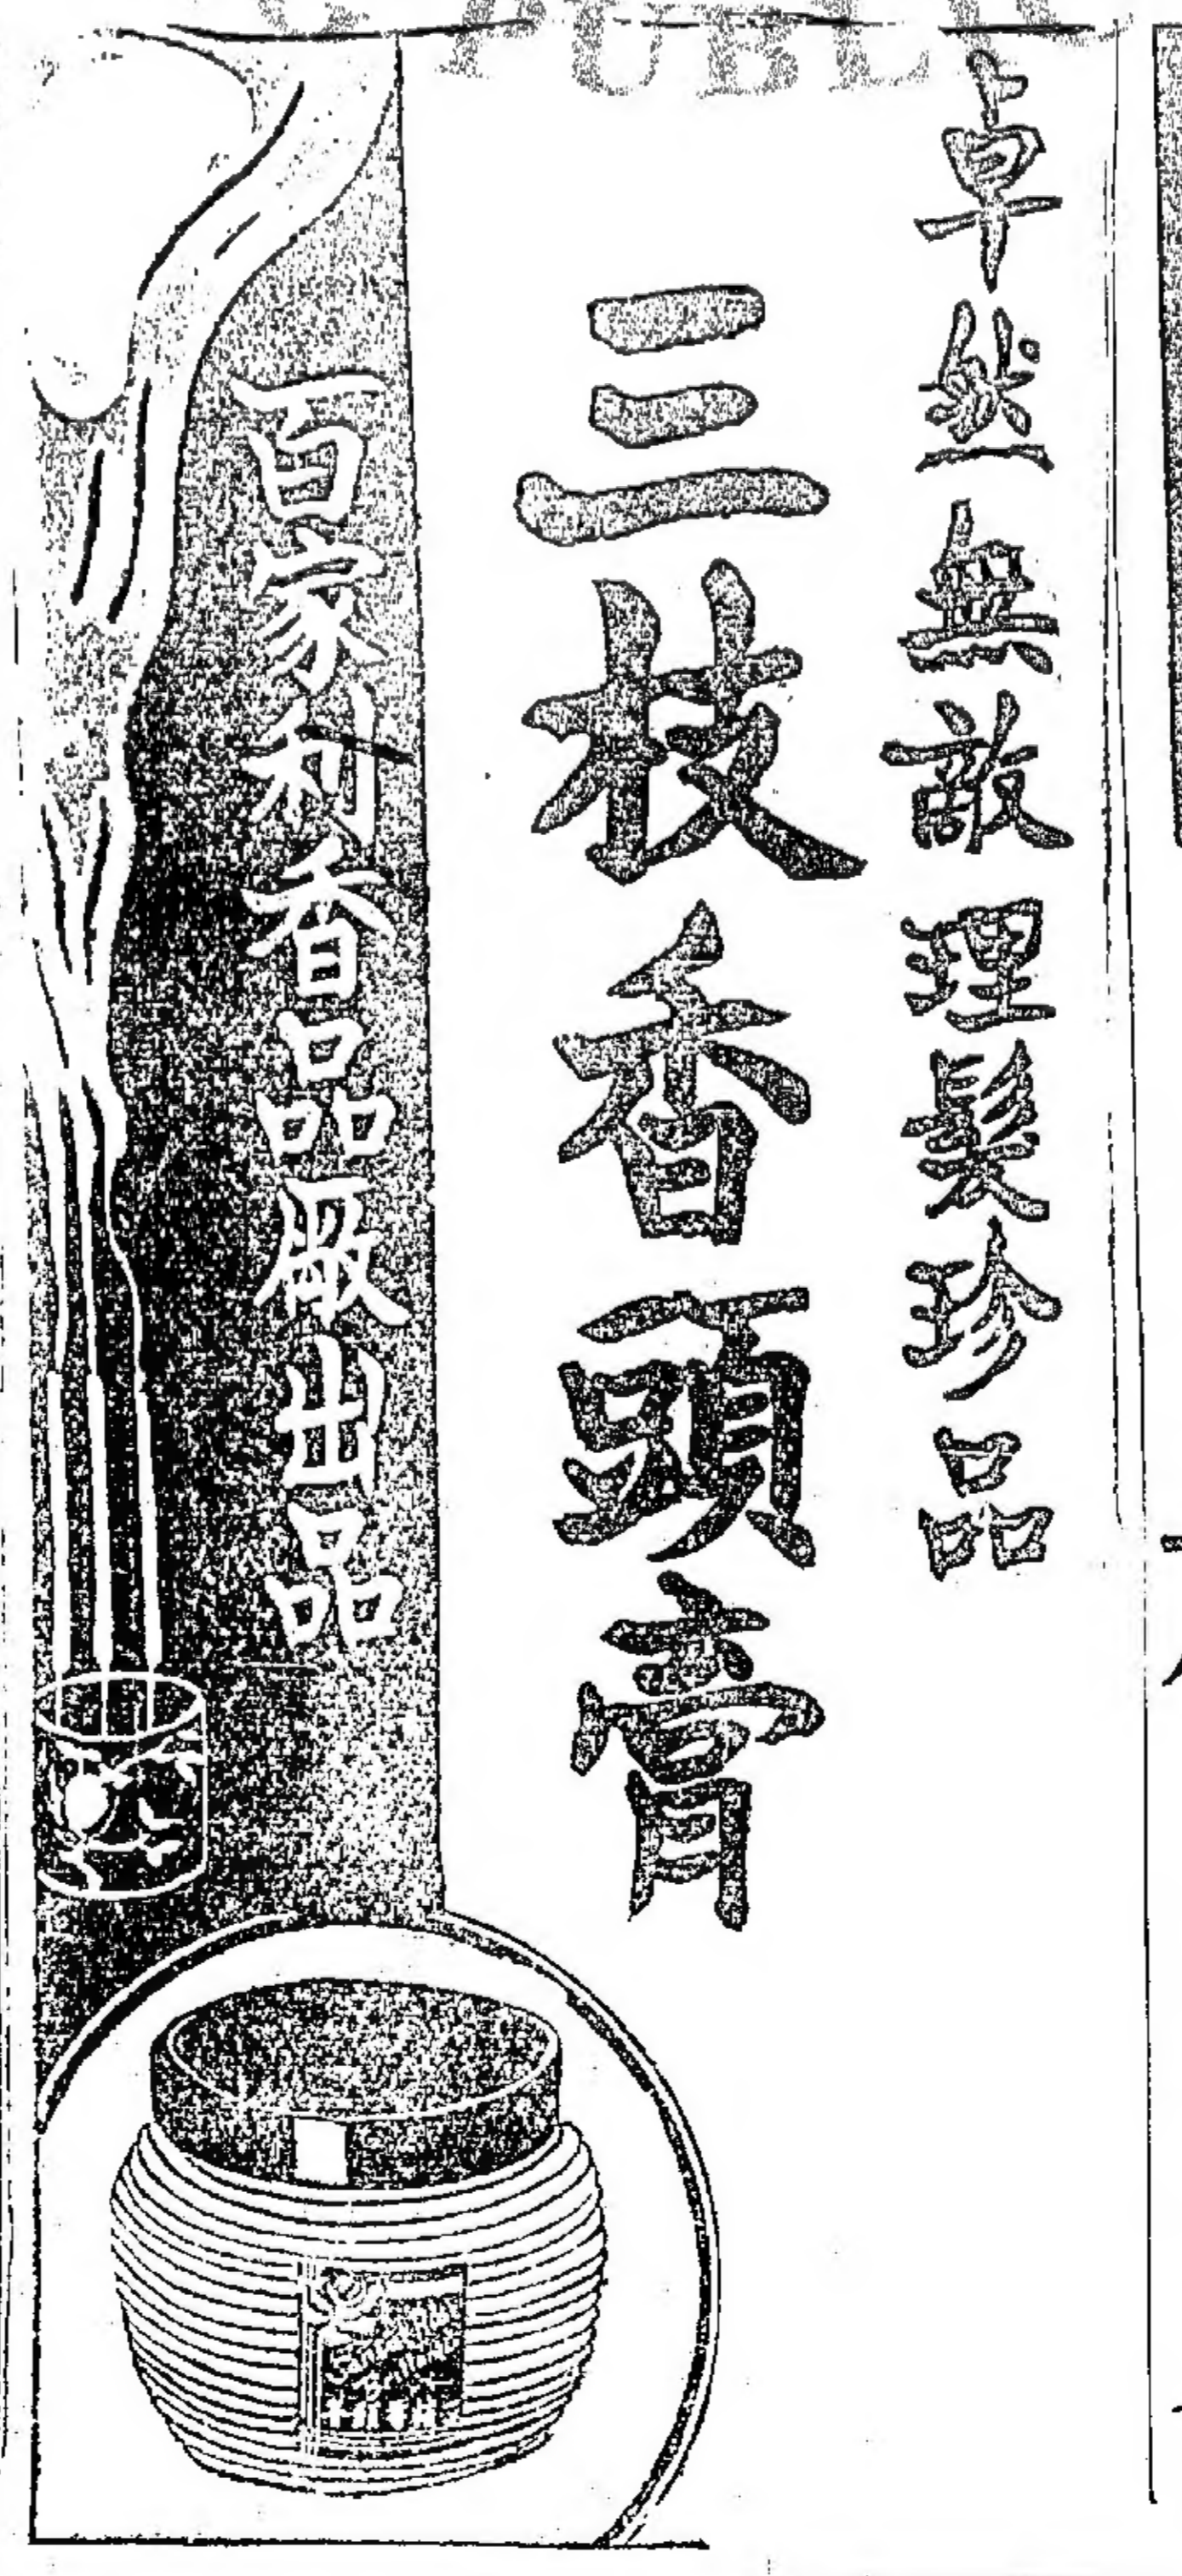 PUBL
卓然無敵理髮珍品
三枝香頭膏
百家利香品廠出品